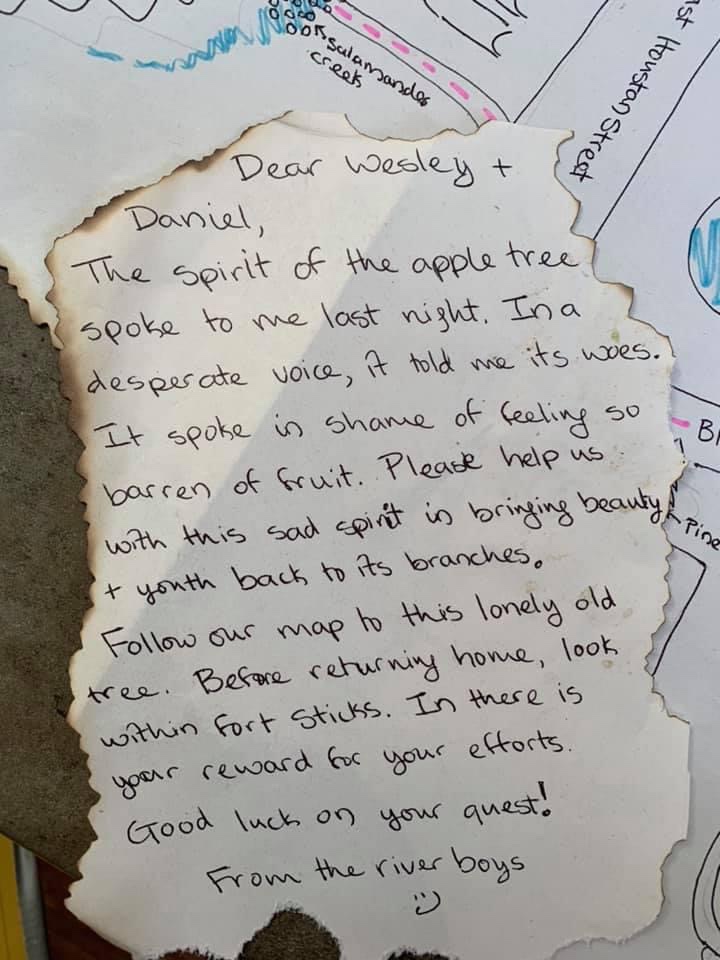 Salamander
creek
Houston Street
Dear Wesley +
Daniel,
The spirit of the apple tree
spoke to me last night. In a
desperate voice, it told me its woes.
It spoke in shame of feeling so
barren of fruit. Please help us
with this sad spirit in bringing beauty
+ youth back to its branches.
Follow our map to this lonely old
tree. Before returning home, look
within Fort Sticks. In there is
your reward for your efforts.
Good luck on your quest!
From the river boys
:)
Pine